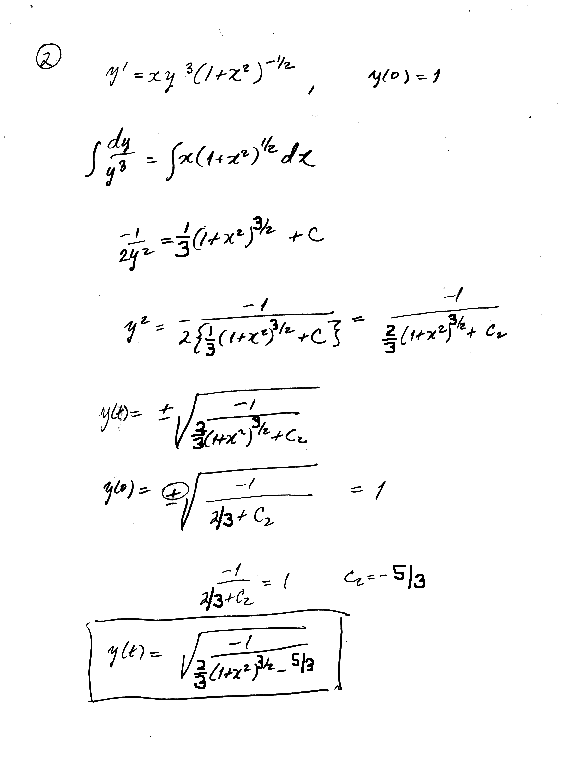 ② y' = xy³(1+x²)^(-1/2), y(0) = 1
∫ dy/y³ = ∫x(1+x²)^(1/2) dx
-1/(2y²) = 1/3 (1+x²)^(3/2) + C
y² = -1/(2{1/3 (1+x²)^(3/2) + C}) = -1/(2/3 (1+x²)^(3/2) + C₂)
y(t) = ±√(-1/(2/3 (1+x²)^(3/2) + C₂))
y(0) = ±√(-1/(2/3 + C₂)) = 1
-1/(2/3 + C₂) = 1 C₂ = -5/3
y(t) = √(-1/(2/3 (1+x²)^(3/2) - 5/3))